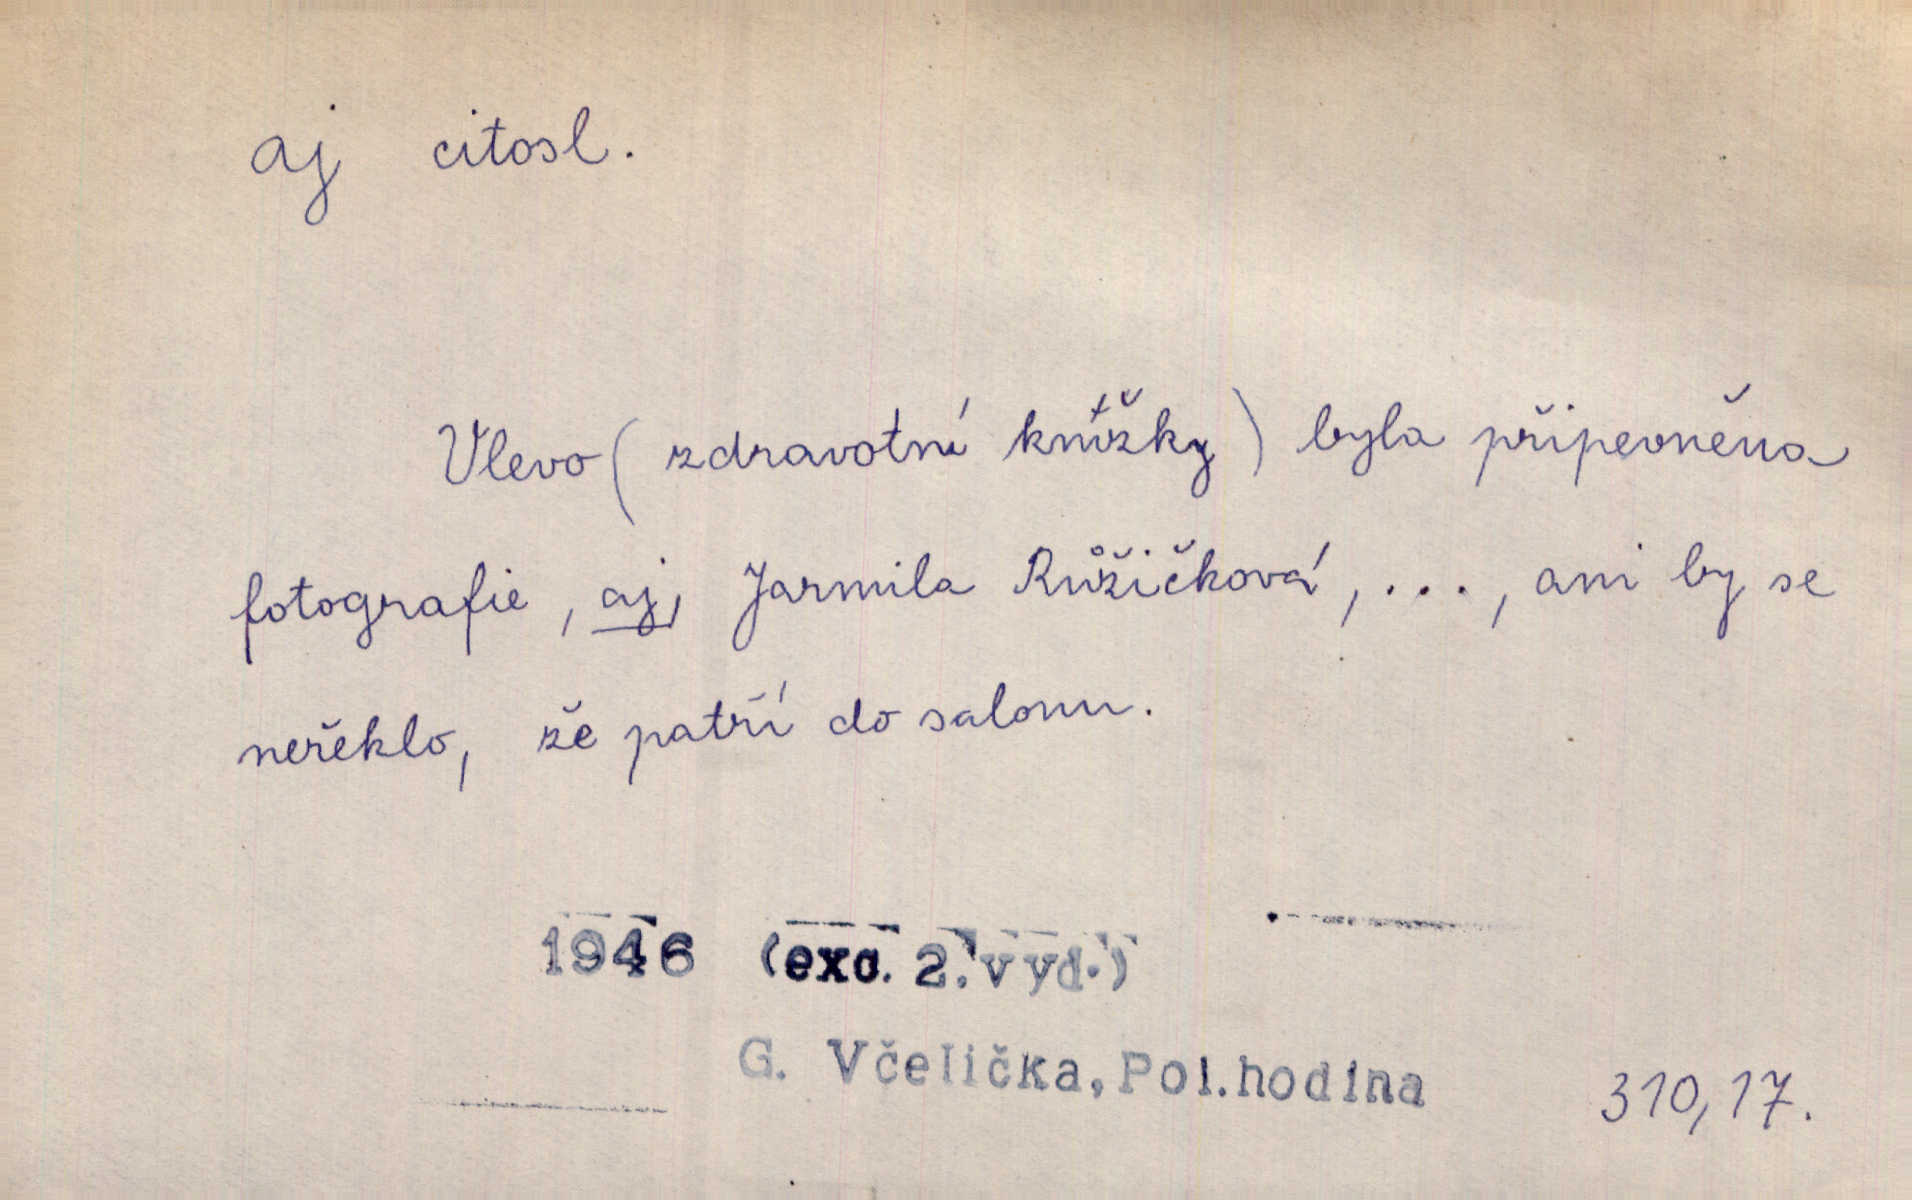 aj citosl.
Vlevo (zdravotní knížky) byla připevněna
fotografie, aj, Jarmila Růžičková, ..., ani by se
neřeklo, že patří do salonu.
1946 (exc. 2. vyd.)
G. Včelička, Pol. hodina
310, 17.